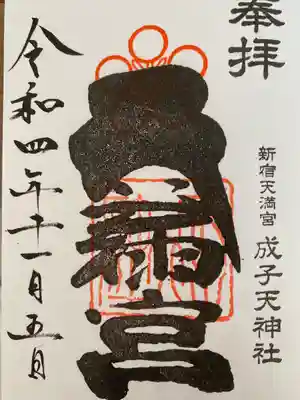 奉拝
新宿天満宮 成子天神社
天満宮
令和四年十一月五日